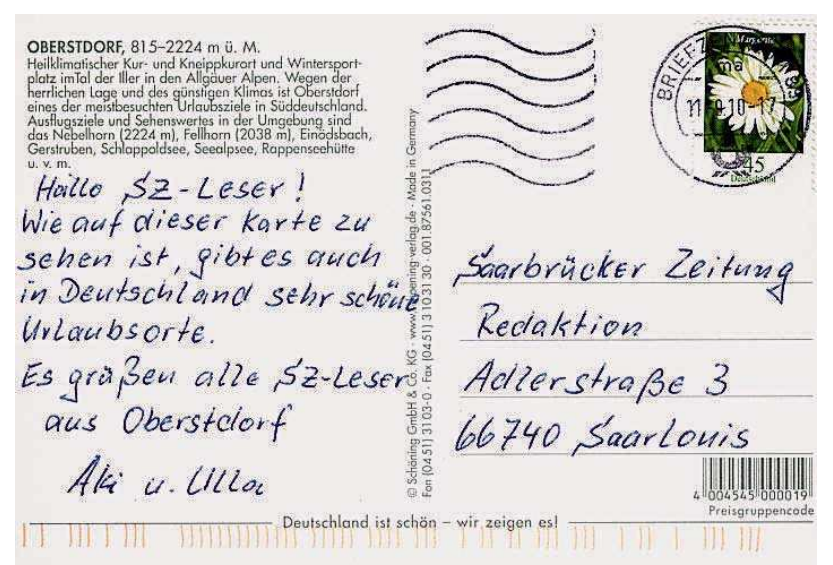 OBERSTDORF, 815–2224 m ü. M.
Heilklimatischer Kur- und Kneippkurort und Wintersport-
platz imTal der Iller in den Allgäuer Alpen. Wegen der
herrlichen Lage und des günstigen Klimas ist Oberstdorf
eines der meistbesuchten Urlaubsziele in Süddeutschland.
Ausflugsziele und Sehenswertes in der Umgebung sind
das Nebelhorn (2224 m), Fellhorn (2038 m), Einödsbach,
Gerstruben, Schlappoldsee, Seealpsee, Rappenseehütte
u. v. m.
Hallo SZ-Leser!
Wie auf dieser Karte zu
sehen ist, gibt es auch
in Deutschland sehr schöne
Urlaubsorte.
Es grüßen alle SZ-Leser
aus Oberstdorf
Aki u. Ulla
© Schöning GmbH & Co. KG · www.schoening-verlag.de · Made in Germany
Fon (04 51) 31 03-0 · Fax (04 51) 3 10 31 30 · 001.87561.0311
45
Deutschland
Saarbrücker Zeitung
Redaktion
Adlerstraße 3
66740 Saarlouis
4 004545 000019
Preisgruppencode
Deutschland ist schön – wir zeigen es!